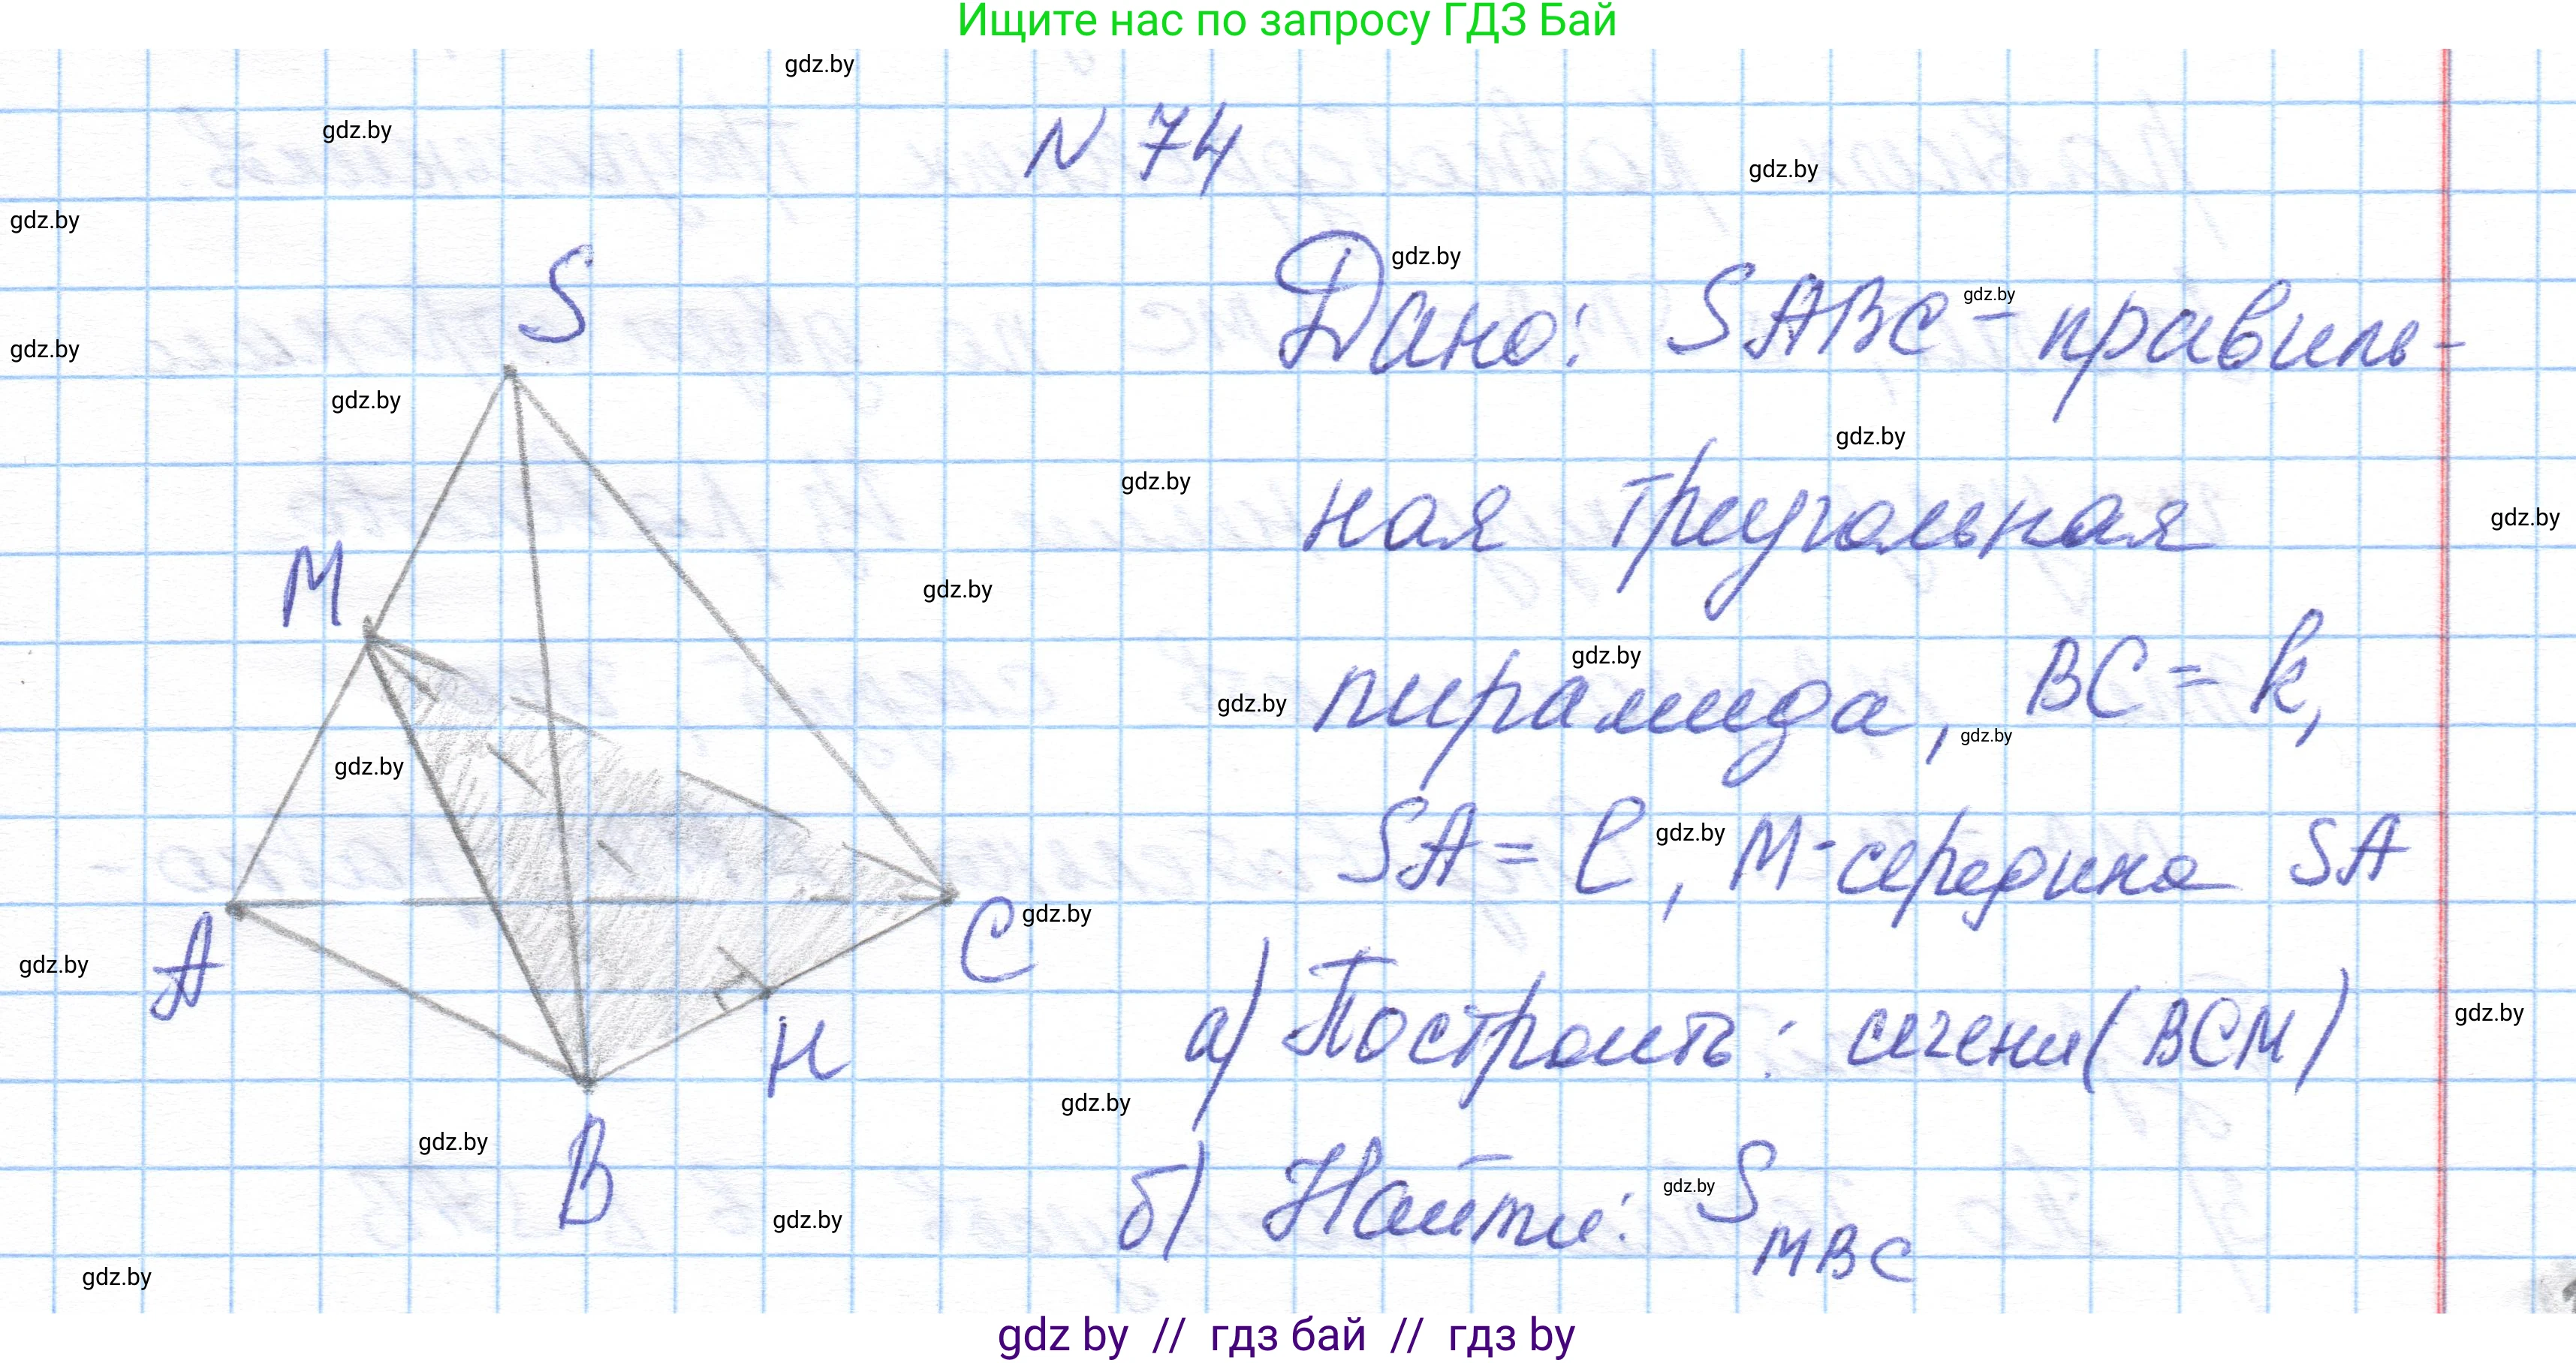 Ищите нас по запросу ГДЗ Бай
gdz.by
gdz.by
N 74
gdz.by
gdz.by
S
gdz.by
Дано: SABC - правиль-
gdz.by
gdz.by
gdz.by
gdz.by
ная треугольная
gdz.by
gdz.by
M
gdz.by
gdz.by
пирамида, BC = k,
gdz.by
gdz.by
gdz.by
SA = l, M-середина SA
gdz.by
A
C
gdz.by
gdz.by
а) Построить: сечени(BCM)
gdz.by
H
gdz.by
B
gdz.by
б) Найти: S MBC
gdz.by
gdz.by
gdz.by
gdz by // гдз бай // гдз by